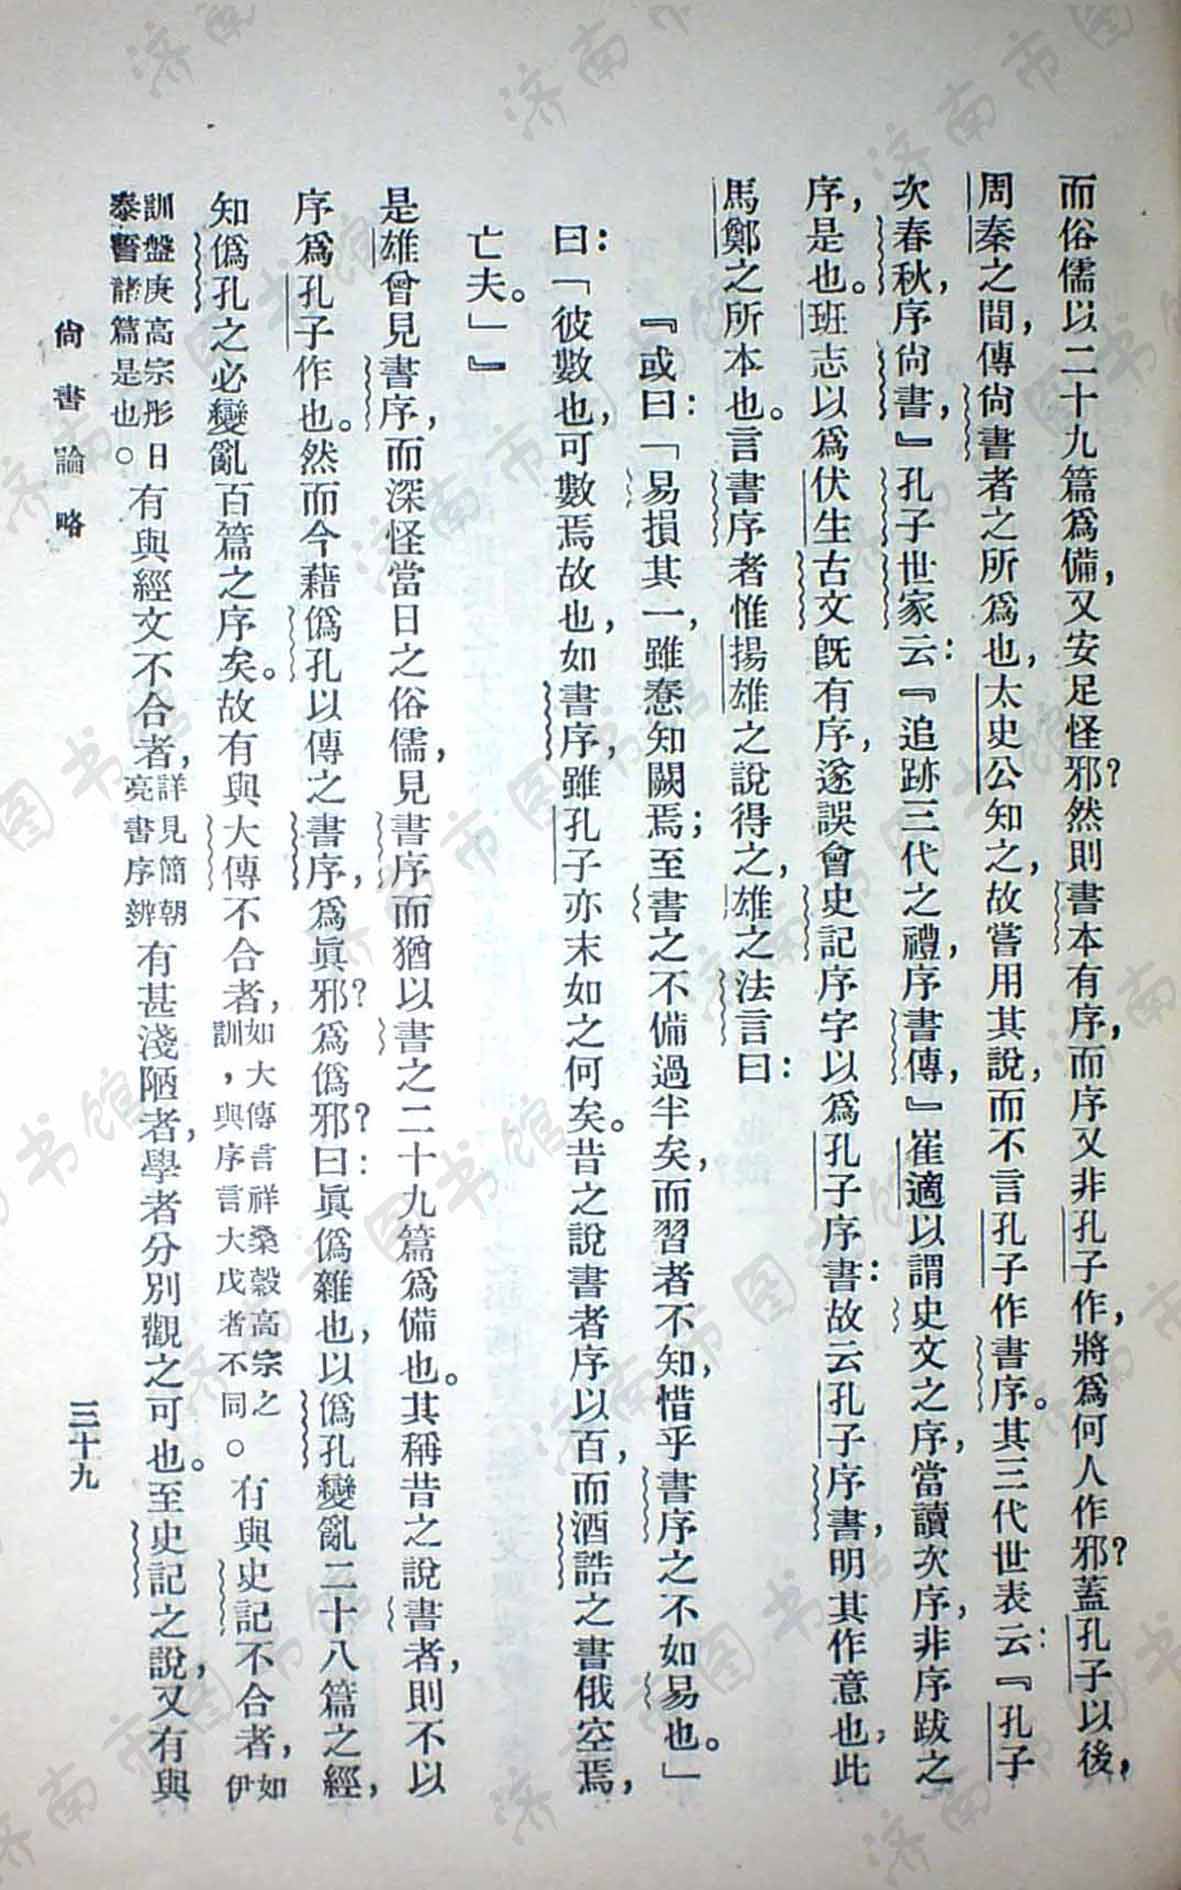 而俗儒以二十九篇爲備，又安足怪邪？然則書本有序，而序又非孔子作，將爲何人作邪？蓋孔子以後，
周秦之間，傳尙書者之所爲也，太史公知之，故嘗用其說，而不言孔子作書序。其三代世表云：『孔子
次春秋，序尙書，』孔子世家云：『追跡三代之禮，序書傳，』崔適以謂史文之序，當讀次序，非序跋之
序，是也。班志以爲伏生古文旣有序，遂誤會史記序字以爲孔子序書：故云孔子序書，明其作意也，此
馬鄭之所本也。言書序者惟揚雄之說得之，雄之法言曰：
『或曰：「易損其一，雖惷知闕焉；至書之不備過半矣，而習者不知，惜乎書序之不如易也。」
曰：「彼數也，可數焉故也，如書序，雖孔子亦末如之何矣。昔之說書者序以百，而酒誥之書俄空焉，
亡夫。」』
是雄曾見書序，而深怪當日之俗儒，見書序而猶以書之二十九篇爲備也。其稱昔之說書者，則不以
序爲孔子作也。然而今藉僞孔以傳之書序，爲眞邪？爲僞邪？曰：眞僞雜也，以僞孔變亂二十八篇之經，
知僞孔之必變亂百篇之序矣。故有與大傳不合者，如大傳言祥桑穀高宗之訓，與序言大戊者不同。有與史記不合者，如伊
訓盤庚高宗肜日泰誓諸篇是也。有與經文不合者，詳見簡朝亮書序辨有甚淺陋者，學者分別觀之可也。至史記之說，又有與
尙書論略
三十九
济南市图书馆